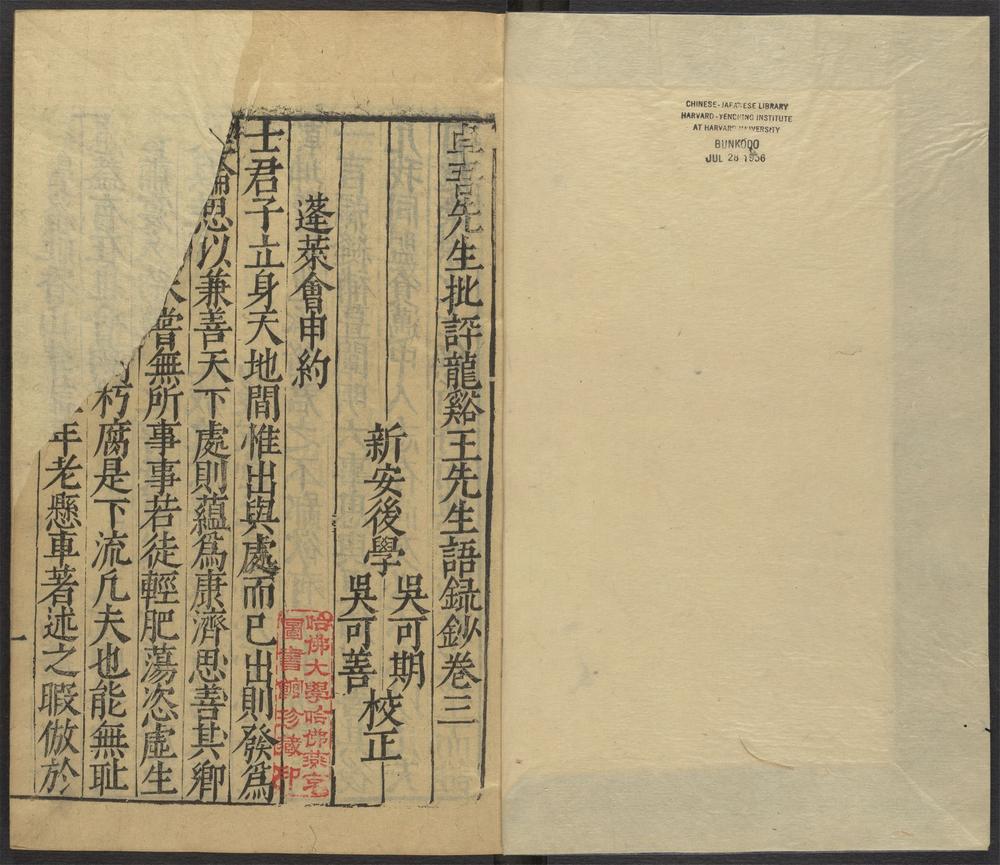 CHINESE-JAPANESE LIBRARY
HARVARD-YENCHING INSTITUTE
AT HARVARD UNIVERSITY
BUNKODO
JUL 28 1956
卓吾先生批評龍谿王先生語録鈔卷三
新安後學
吳可期
吳可善
校正
蓬萊會申約
士君子立身天地間惟出與處而已出則發爲
思以兼善天下處則蘊爲康濟思善其鄉
嘗無所事事若徒輕肥蕩恣虛生
朽腐是下流凡夫也能無耻
年老懸車著述之暇倣於
一
哈佛大學哈佛燕京
圖書館珍藏印